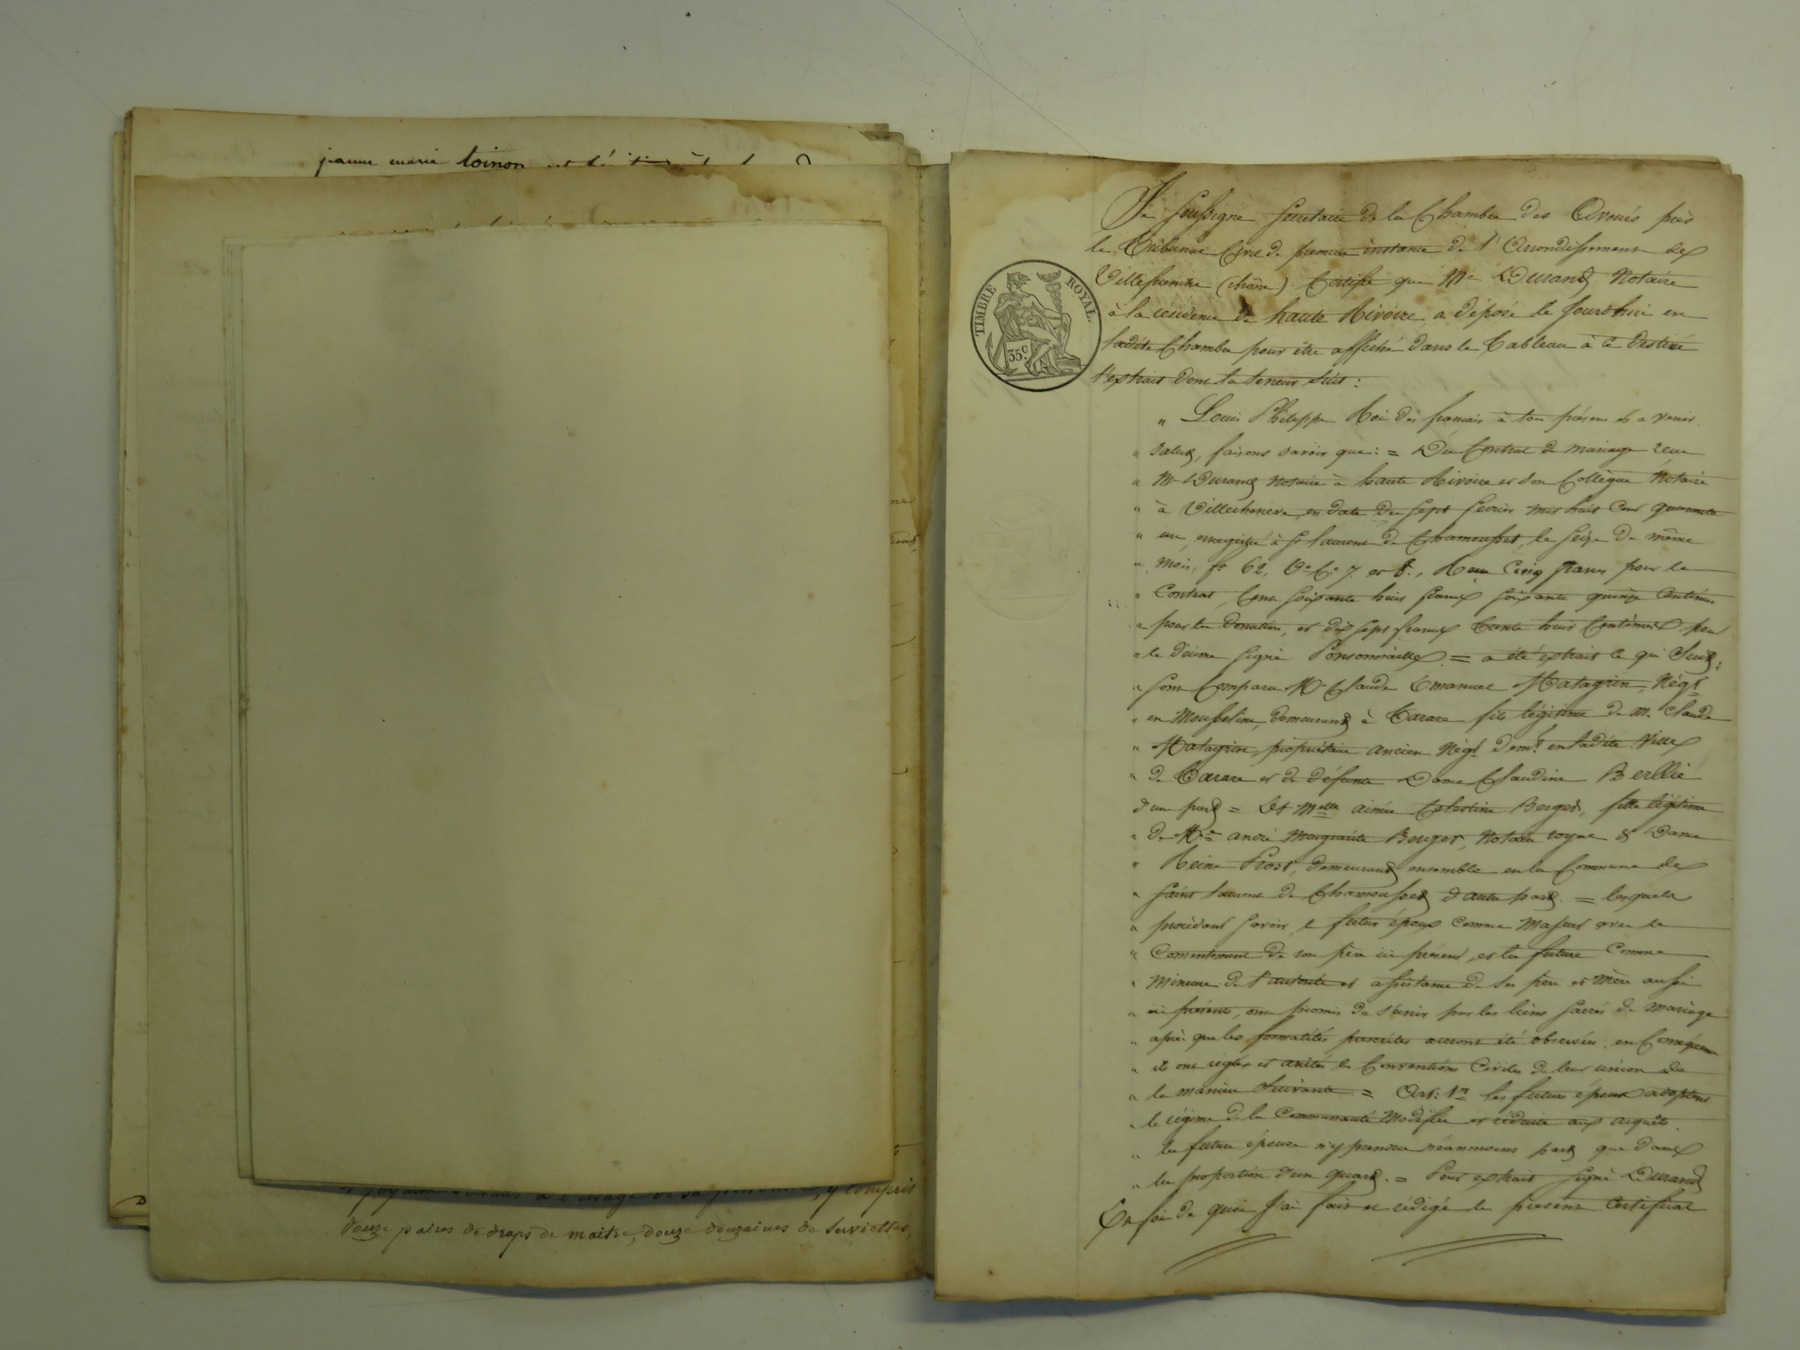 jeanne marie toinon
à l'usage de sa personne, y compris
douze paires de draps de maitre, douze douzaines de serviettes,
TIMBRE ROYAL.
35 c.
Je soussigné secretaire de la Chambre des Avoués près
le Tribunal Civil de premiere instance de l'Arrondissement de
Villefranche (rhône) Certifie que Me Durand Notaire
à la résidence de haute Rivoire, a déposé le jourd'hui en
ladite Chambre pour être affiché dans le Tableau à ce destiné
l'extrait dont la teneur suit :
" Louis Philippe Roi des français à tous présens et a venir.
" salut, faisons savoir que : = Du Contrat de mariage reçu
" Me Durand Notaire à haute Rivoire et son Collègue Notaire
" à Villechenève, en date du sept fevrier mil huit cent quarante
" un, enregistré à St laurent de Chamousset, le seize du même
" mois, fo 62, Vo Ces 7 et 8., Reçu Cinq francs pour le
" Contrat, Cent soixante huit francs soixante quinze Centimes
" pour la donation, et dix sept francs trente huit Centimes pour
" le dixime signé Ponsonnaille = a été extrait ce qui suit :
" sont comparu Mr Claude Emanuel Matagrin, Négt
" en Mousseline, demeurant à Tarare fils légitime de M. Claude
" Matagrin, propriétaire ancien Négt demt en ladite Ville
" de Tarare et de défunte Dame Claudine Berllié
d'une part = Et Melle aimée Celestine Berger, fille légitime
" de Me andré Marguerite Berger, Notaire royal & Dame
" Reine Prost, demeurant ensemble en la Commune de
" saint laurent de Chamousset d'autre part. = lesquels
" procédant savoir, le futur époux comme Majeur avec le
" Consentement de son père ici présent, et la future Comme
" Mineure de l'autorité et assistance de ses père et mère aussi
" ici présents, ont promis de s'unir par les liens sacrés du mariage
" après que les formalités prescrites auront été observées. en Conséquence
" ils ont réglés et arrêtés les Conventions Civiles de leur union de
" la manière suivante = Art: 1er les futurs époux adoptent
" le régime de la Communauté Modifiée et réduite aux acquêts.
" la future épouse n'y prendra néanmoins part que dans
" la proportion d'un quart. = Pour extrait signé Durand
En foi de quoi J'ai fait et rédigé le présent Certificat